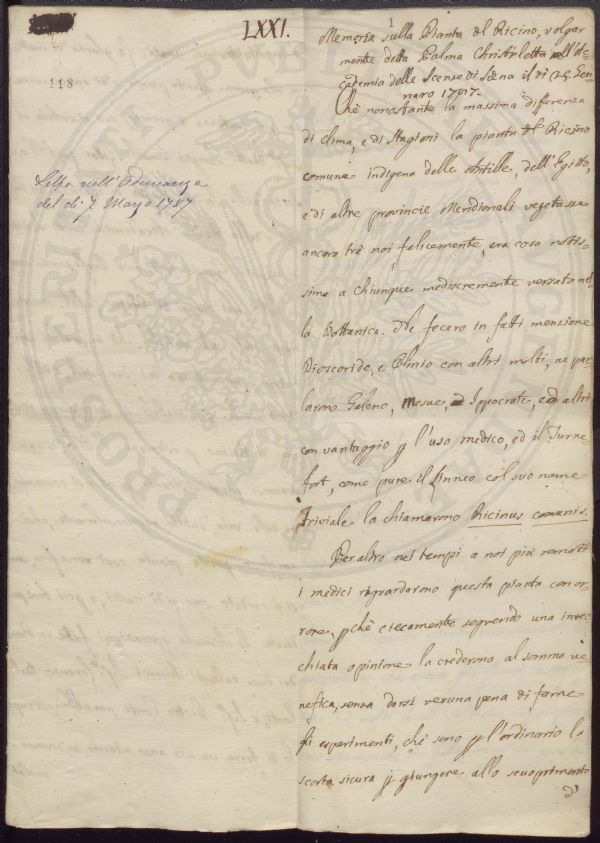 LXXI.
1
118
Letta nell'Adunanza
del dì 7. Marzo 1787
Memoria sulla Pianta del Ricino, volgar
mente detta Palma Christi letta nell'Ac
cademia delle Scienze di Siena il dì 25. Gen
naro 1787.
Chè nonostante la massima differenza
di clima, e di Stagioni la pianta del Ricino
comune indigena delle Antille, dell'Egitto,
e di altre provincie Meridionali vegetasse
ancora trà noi felicemente, era cosa notis
sima a chiunque mediocremente versato nel
la Bottanica. Ne fecero in fatti menzione
Dioscoride, e Plinio con altri molti, ne par
larono Galeno, Mesue, Ippocrate, ed altri
con vantaggio p l'uso medico, ed il Turne
fort, come pure il Linneo col suo nome
triviale la chiamarono Ricinus comunis.
Per altro nei tempi a noi più remoti
i medici riguardarono questa pianta con or
rore, pchè ciecamente seguendo una invec
chiata opinione la crederono al sommo ve
nefica, senza darsi veruna pena di farne
gli esperimenti, che sono p l'ordinario la
scorta sicura p giungere allo scuoprimento
d'